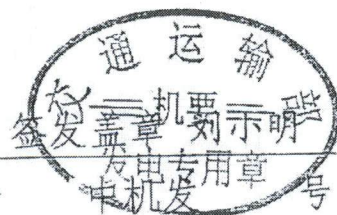 交通运输部
机要
签发盖章 刘示明
发电专用章
中机发 号